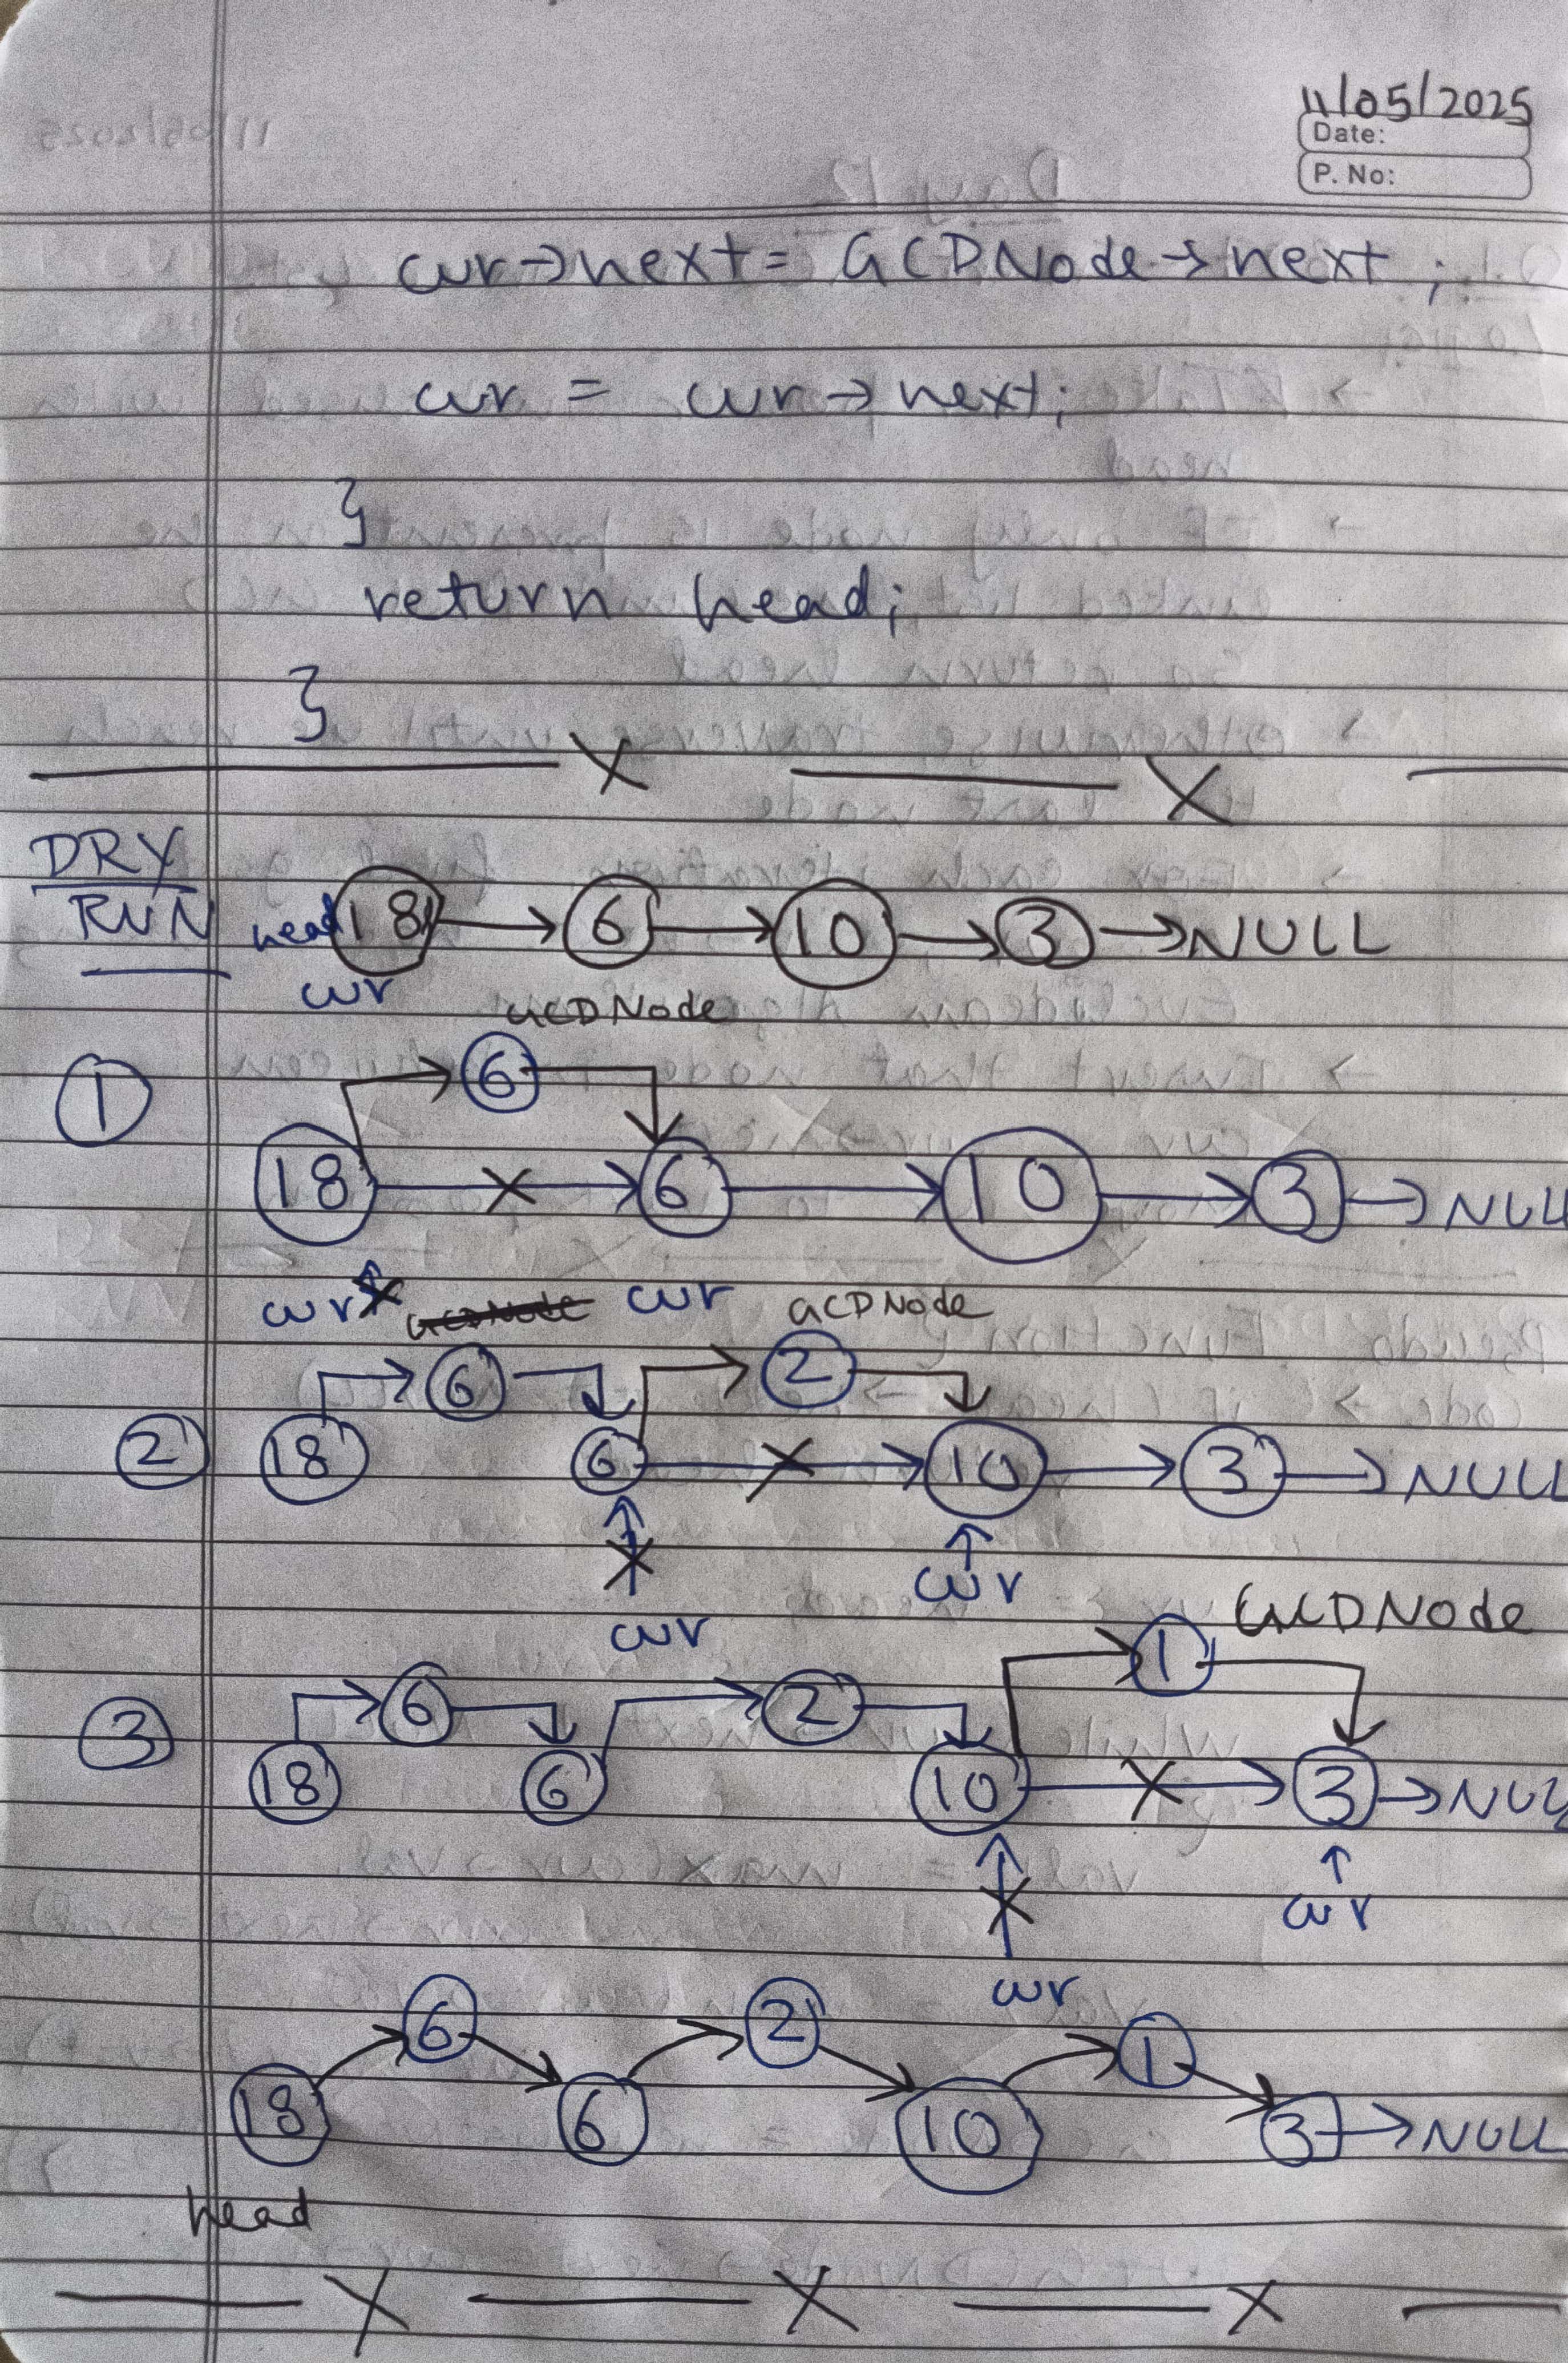 11/05/2025
Date:
P. No:
cur→next = GCDNode→next ;
cur = cur→next;
}
return head;
}
DRY
RUN
head 18 → 6 → 10 → 3 → NULL
cur
GCDNode
1
6
18 → 6 → 10 → 3 → NULL
cur GCDNode cur GCDNode
6 2
2 18 6 → 10 → 3 → NULL
cur
cur
GCDNode
1
6 2
3
18 6 10 → 3 → NULL
cur
cur
6 2 1
18 6 10 3 → NULL
head